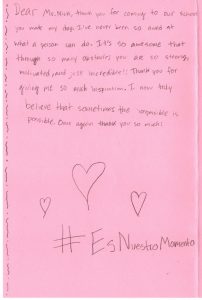 Dear Mr. Mith, thank you for coming to our school
you made my day. I've never been so awed at
what a person can do. It's so awesome that
through so many obstacles you are so strong,
motivated, and just incredible!! Thank you for
giving me so much inspiration. I now truly
believe that sometimes the impossible is
possible. Once again thank you so much!
#EsNuestroMomento